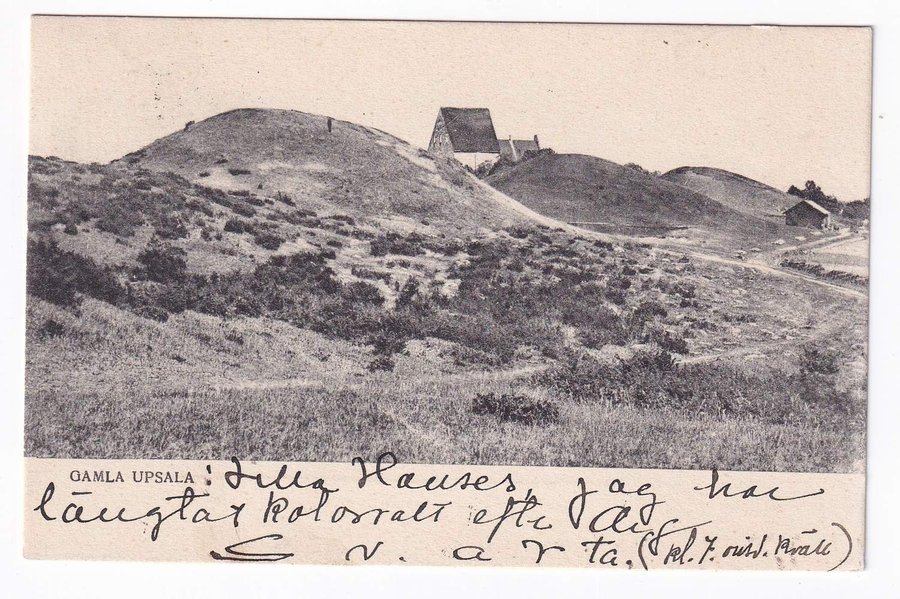 GAMLA UPSALA : Lilla Hauses, jag har
längtat kolossalt efter dig
Svarta. (kl. 7. onsd. kväll)